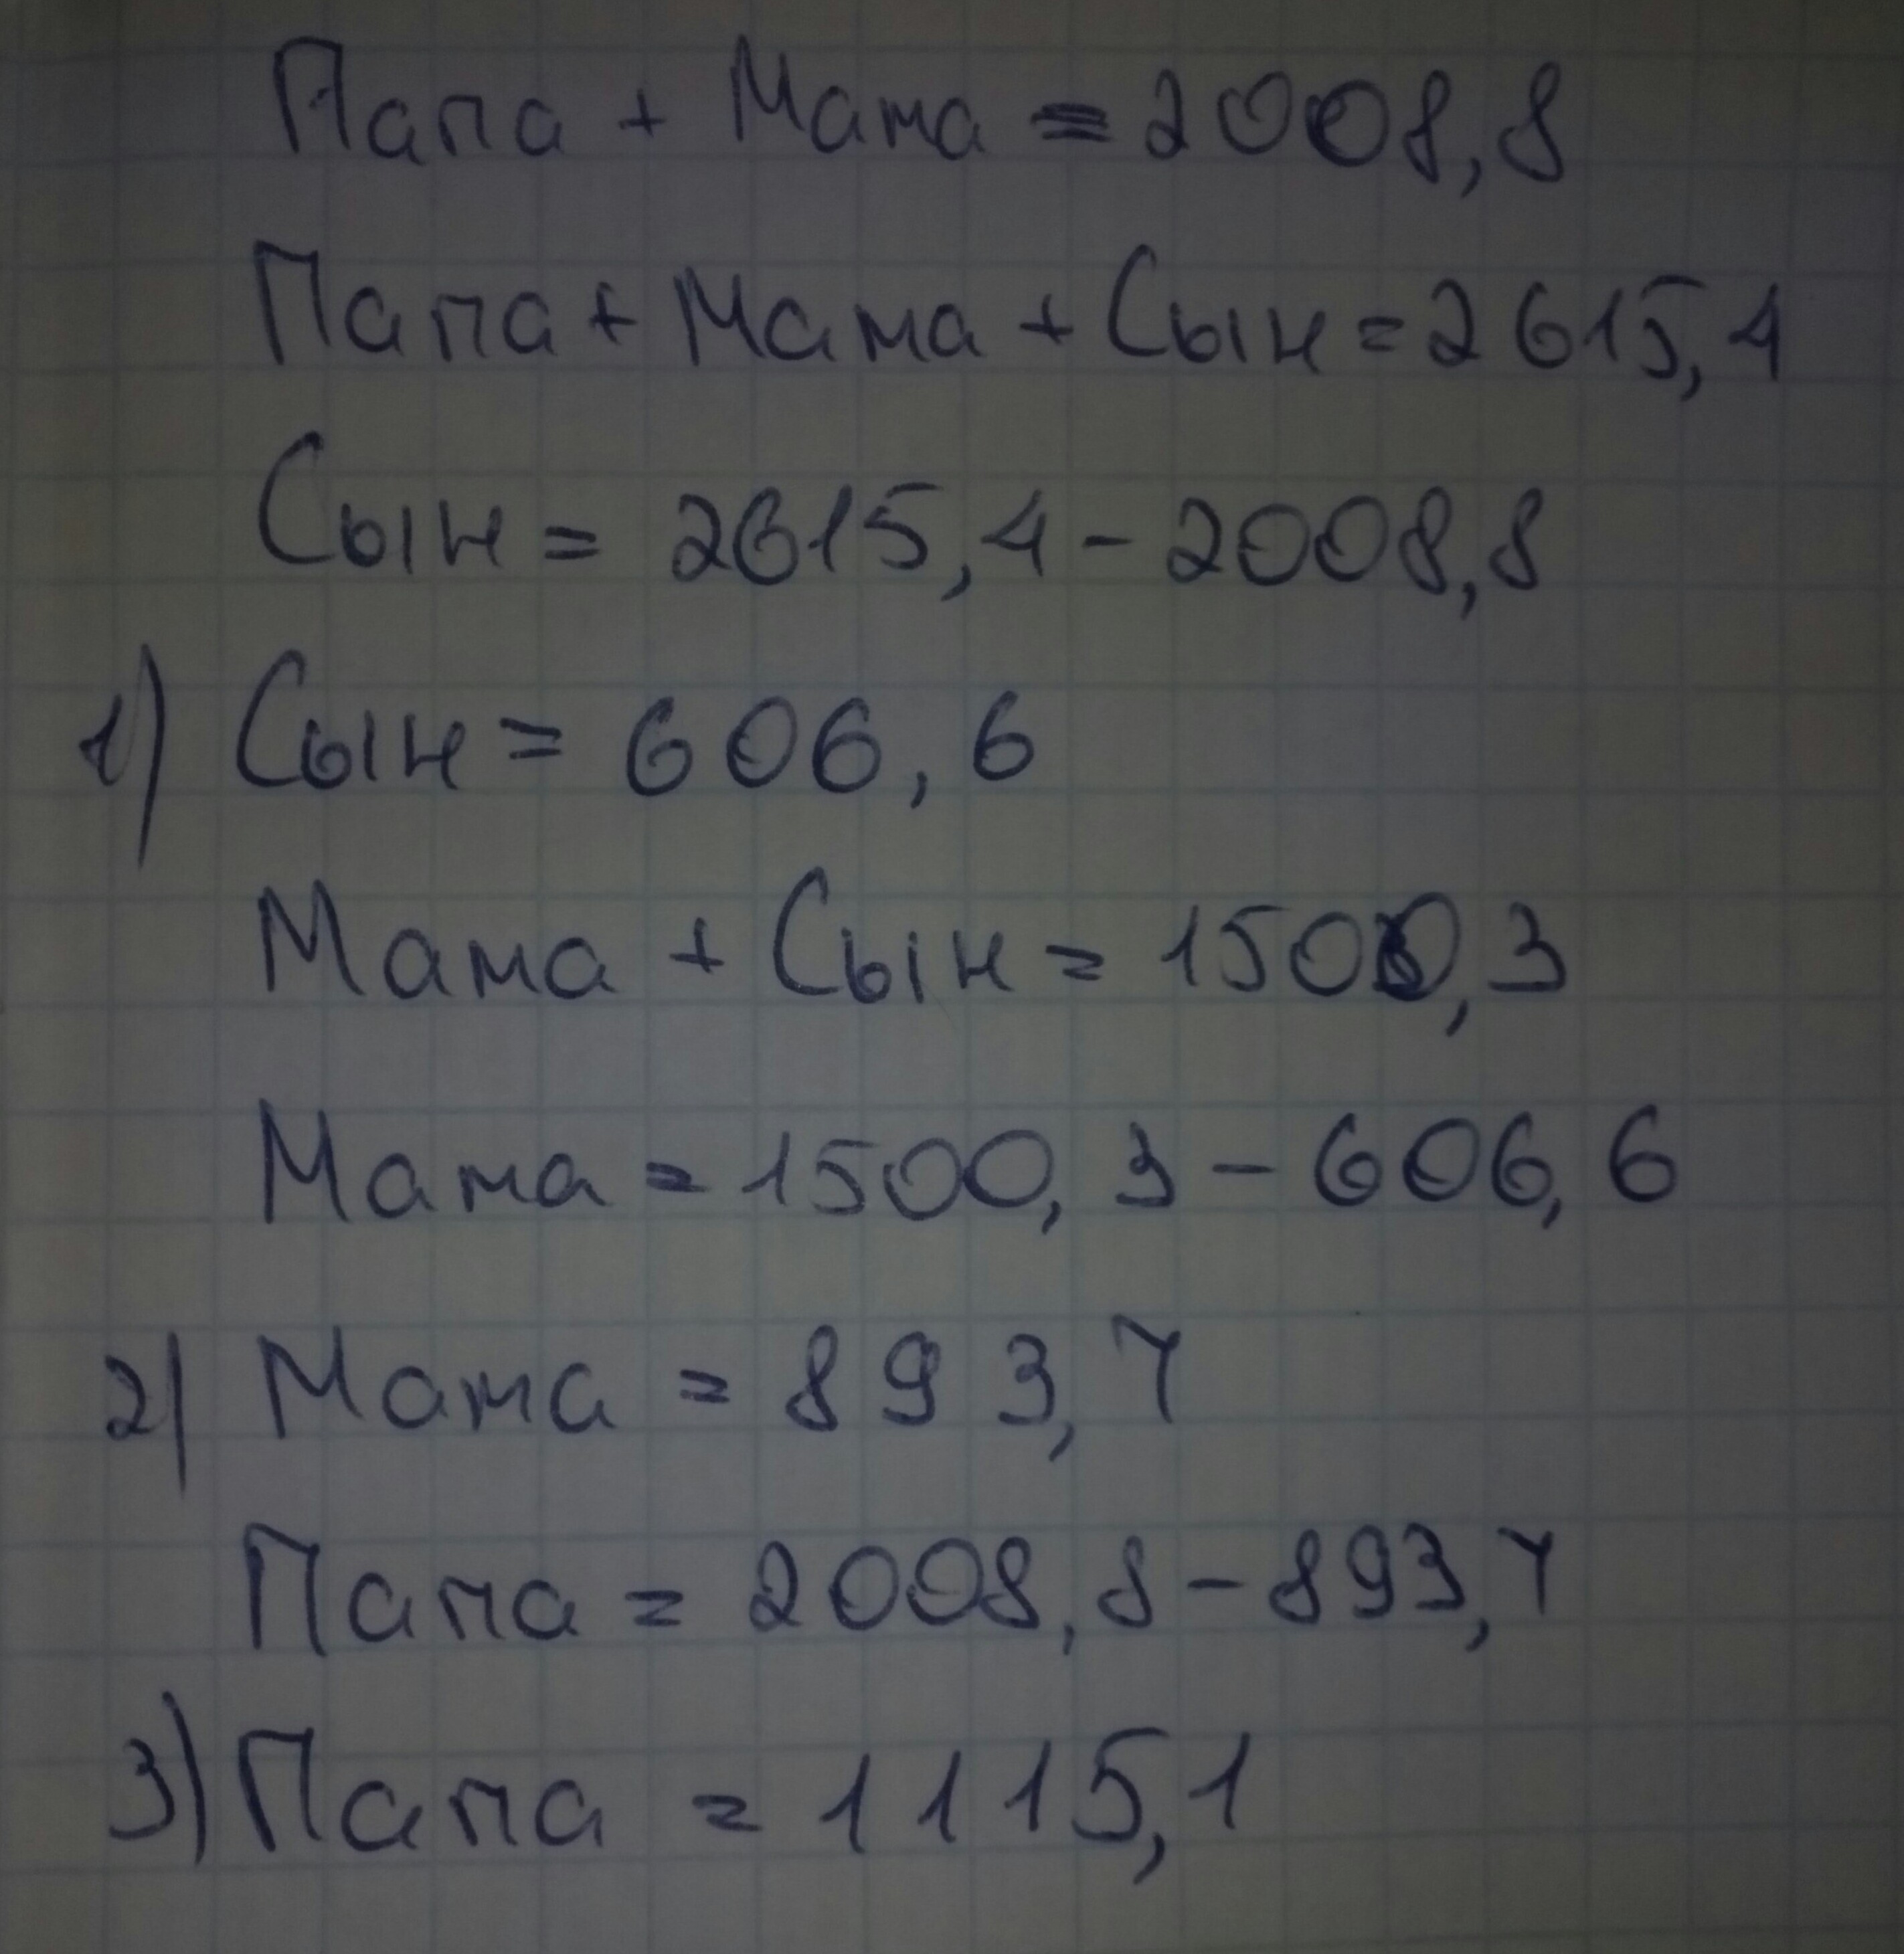 Папа + Мама = 2008,8
Папа + Мама + Сын = 2615,4
Сын = 2615,4 - 2008,8
1) Сын = 606,6
Мама + Сын = 1500,3
Мама = 1500,3 - 606,6
2) Мама = 893,7
Папа = 2008,8 - 893,7
3) Папа = 1115,1